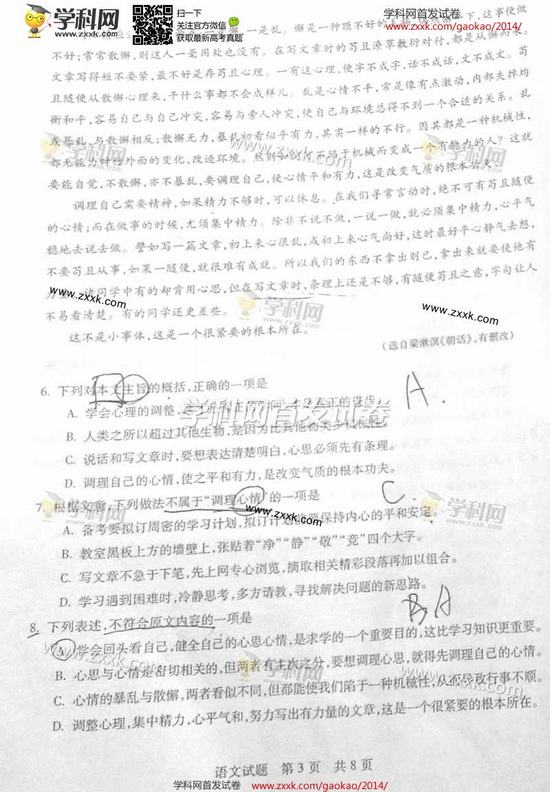 学科网
www.zxxk.com
扫一扫
关注官方微信
获取最新高考真题
学科网首发试卷
www.zxxk.com/gaokao/2014/
不好;常常散懈,则这人一毫用处也没有。在写文章时的苟且潦草敷衍对付,都是从懈来。
文章写得短不要紧,最不好是存苟且心理。一有这心理,便字不成字,话不成话,文不成文。苟
且随便从散懈心理来,干什么事都不会成样儿。乱是心情不平,常是像有点激动,内部失掉均
衡和平,容易自己与自己冲突,容易与旁人冲突,使自己与环境总得不到一个合适的关系。乱
或暴乱,与散懈相反;散懈无力,暴乱初看似乎有力,其实一样的不行。因其都是一种机械性,
都无能力对付外面的变化,改造环境。
要能自觉,不散懈,亦不暴乱,要调理自己,使心情平和有力,这是改变气质的根本功夫。
调理自己需要精神,如果精力不够时,可以休息。在我们寻常言动时,绝不可有苟且随便
的心情;而在做事的时候,尤须集中精力。除非不说不做,一说一做,就必须集中精力,心平气
稳地去说去做。譬如写一篇文章,初上来心很乱,或初上来心气尚好,这时最好平心静气去想,
不要苟且从事,如果一随便,就很难有成就。所以我们的东西不拿出则已,拿出来就要使他有
力量。诸同学中有的却肯用心思,但在写文章时,条理上还是不够,有随便苟且之意,字句让人
不易看清楚。有的同学还更差些。
这不是小事体,这是一个很紧要的根本所在。
(选自梁漱溟《朝话》,有删改)
6. 下列对本文主旨的概括,正确的一项是
A.
A. 学会心理的调整,
B. 人类之所以超过其他生物,
C. 说话和写文章时,要想表达清楚明白,心思必须先有条理。
D. 调理自己的心情,使之平和有力,是改变气质的根本功夫。
7. 根据文章,下列做法不属于“调理心情”的一项是
C.
A. 备考要拟订周密的学习计划,拟订计划时要保持内心的平和安定。
B. 教室黑板上方的墙壁上,张贴着“净”“静”“敬”“竞”四个大字。
C. 写文章不急于下笔,先上网专心浏览,摘取相关精彩段落再加以组合。
D. 学习遇到困难时,冷静思考,多方请教,寻找解决问题的新思路。
8. 下列表述,不符合原文内容的一项是
A
A. 学会回头看自己,健全自己的心思心情,是求学的一个重要目的,这比学习知识更重要。
B. 心思与心情是密切相关的,但两者有主次之分,要想调理心思,就得先调理自己的心情。
C. 心情的暴乱与散懈,两者看似不同,但都能使我们陷于一种机械性,从而导致行事不顺。
D. 调整心理,集中精力,心平气和,努力写出有力量的文章,这是一个很紧要的根本所在。
语文试题 第3页 共8页
学科网首发试卷
www.zxxk.com/gaokao/2014/